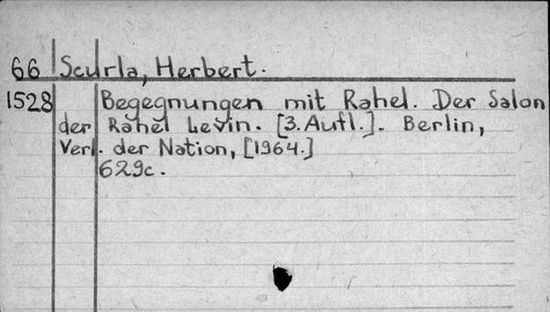 66 Scurla, Herbert.
1528 Begegnungen mit Rahel. Der Salon
der Rahel Levin. [3. Aufl.]. Berlin,
Verl. der Nation, [1964.]
629c.